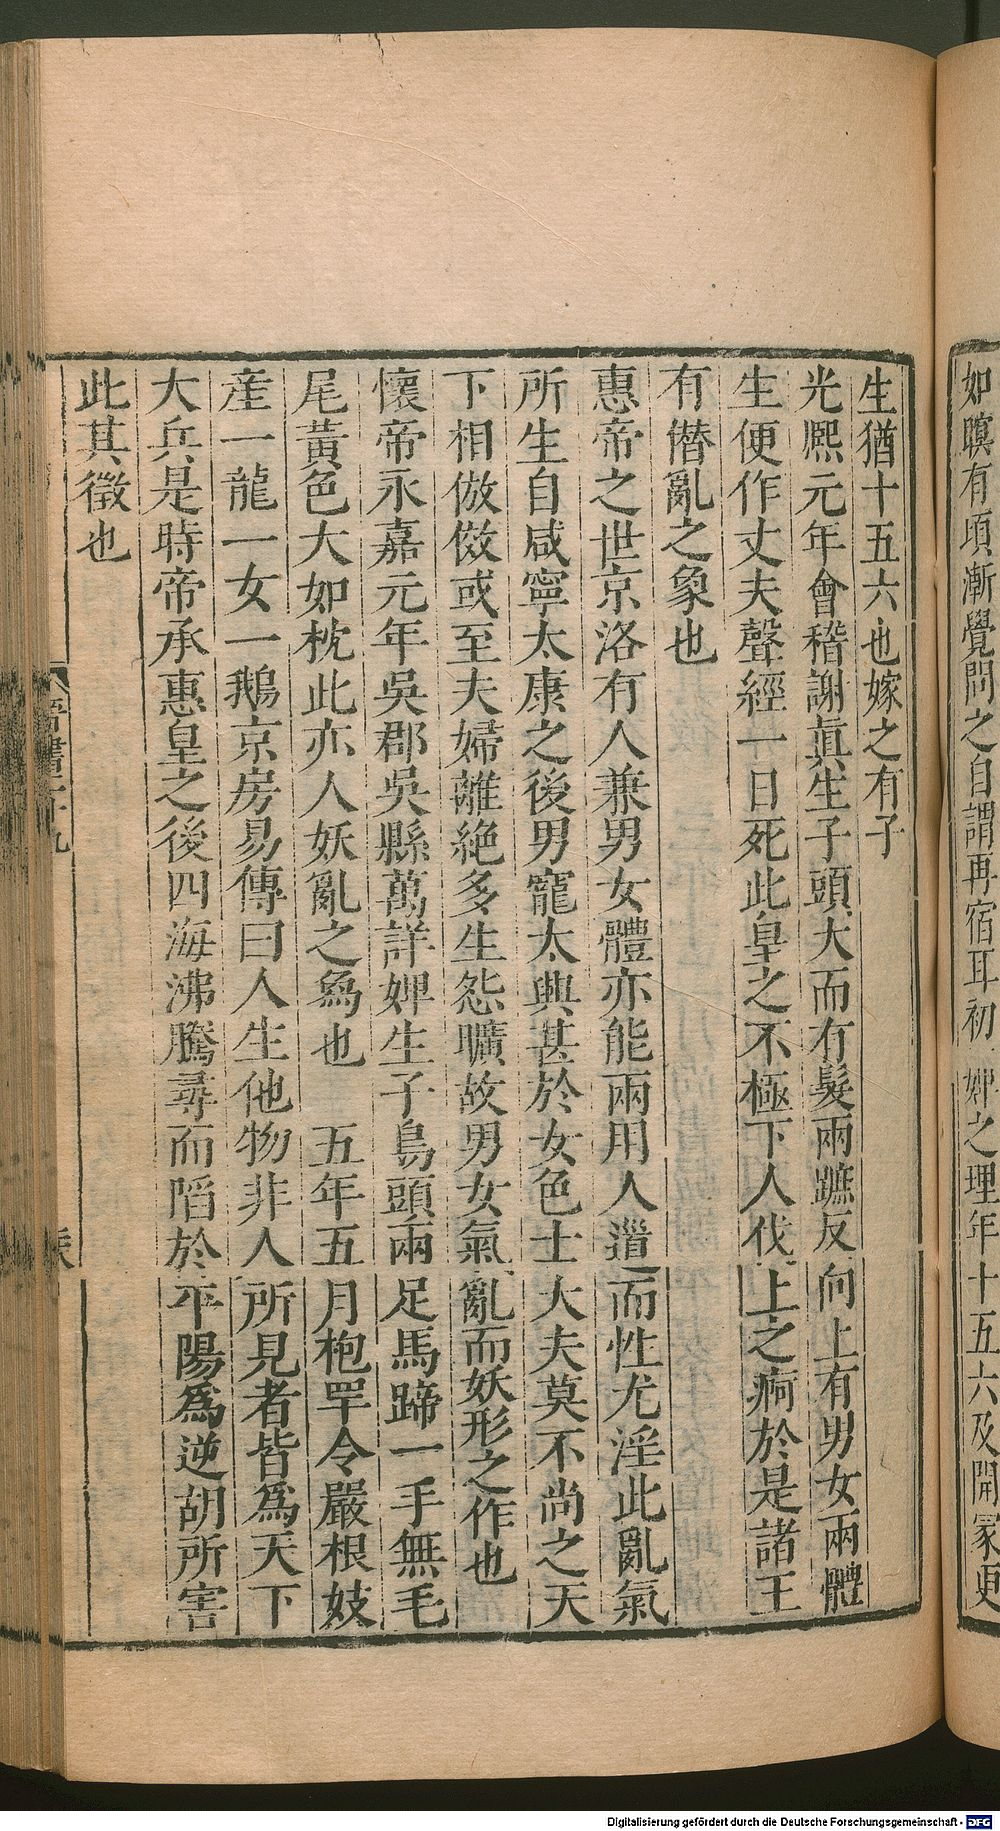 如瞑有頃漸覺問之自謂再宿耳初婢之埋年十五六及開冢更
生猶十五六也嫁之有子
光熙元年會稽謝眞生子頭大而有髮兩蹠反向上有男女兩體
生便作丈夫聲經一日死此皇之不極下人伐上之痾於是諸王
有僭亂之象也
惠帝之世京洛有人兼男女體亦能兩用人道而性尤淫此亂氣
所生自咸寧太康之後男寵太興甚於女色士大夫莫不尚之天
下相倣傚或至夫婦離絕多生怨曠故男女氣亂而妖形之作也
懷帝永嘉元年吳郡吳縣萬詳婢生子鳥頭兩足馬蹄一手無毛
尾黃色大如枕此亦人妖亂之爲也 五年五月枹罕令嚴根妓
產一龍一女一鵝京房易傳曰人生他物非人所見者皆爲天下
大兵是時帝承惠皇之後四海沸騰尋而陷於平陽爲逆胡所害
此其徵也
晉書二十九
Digitalisierung gefördert durch die Deutsche Forschungsgemeinschaft - DFG